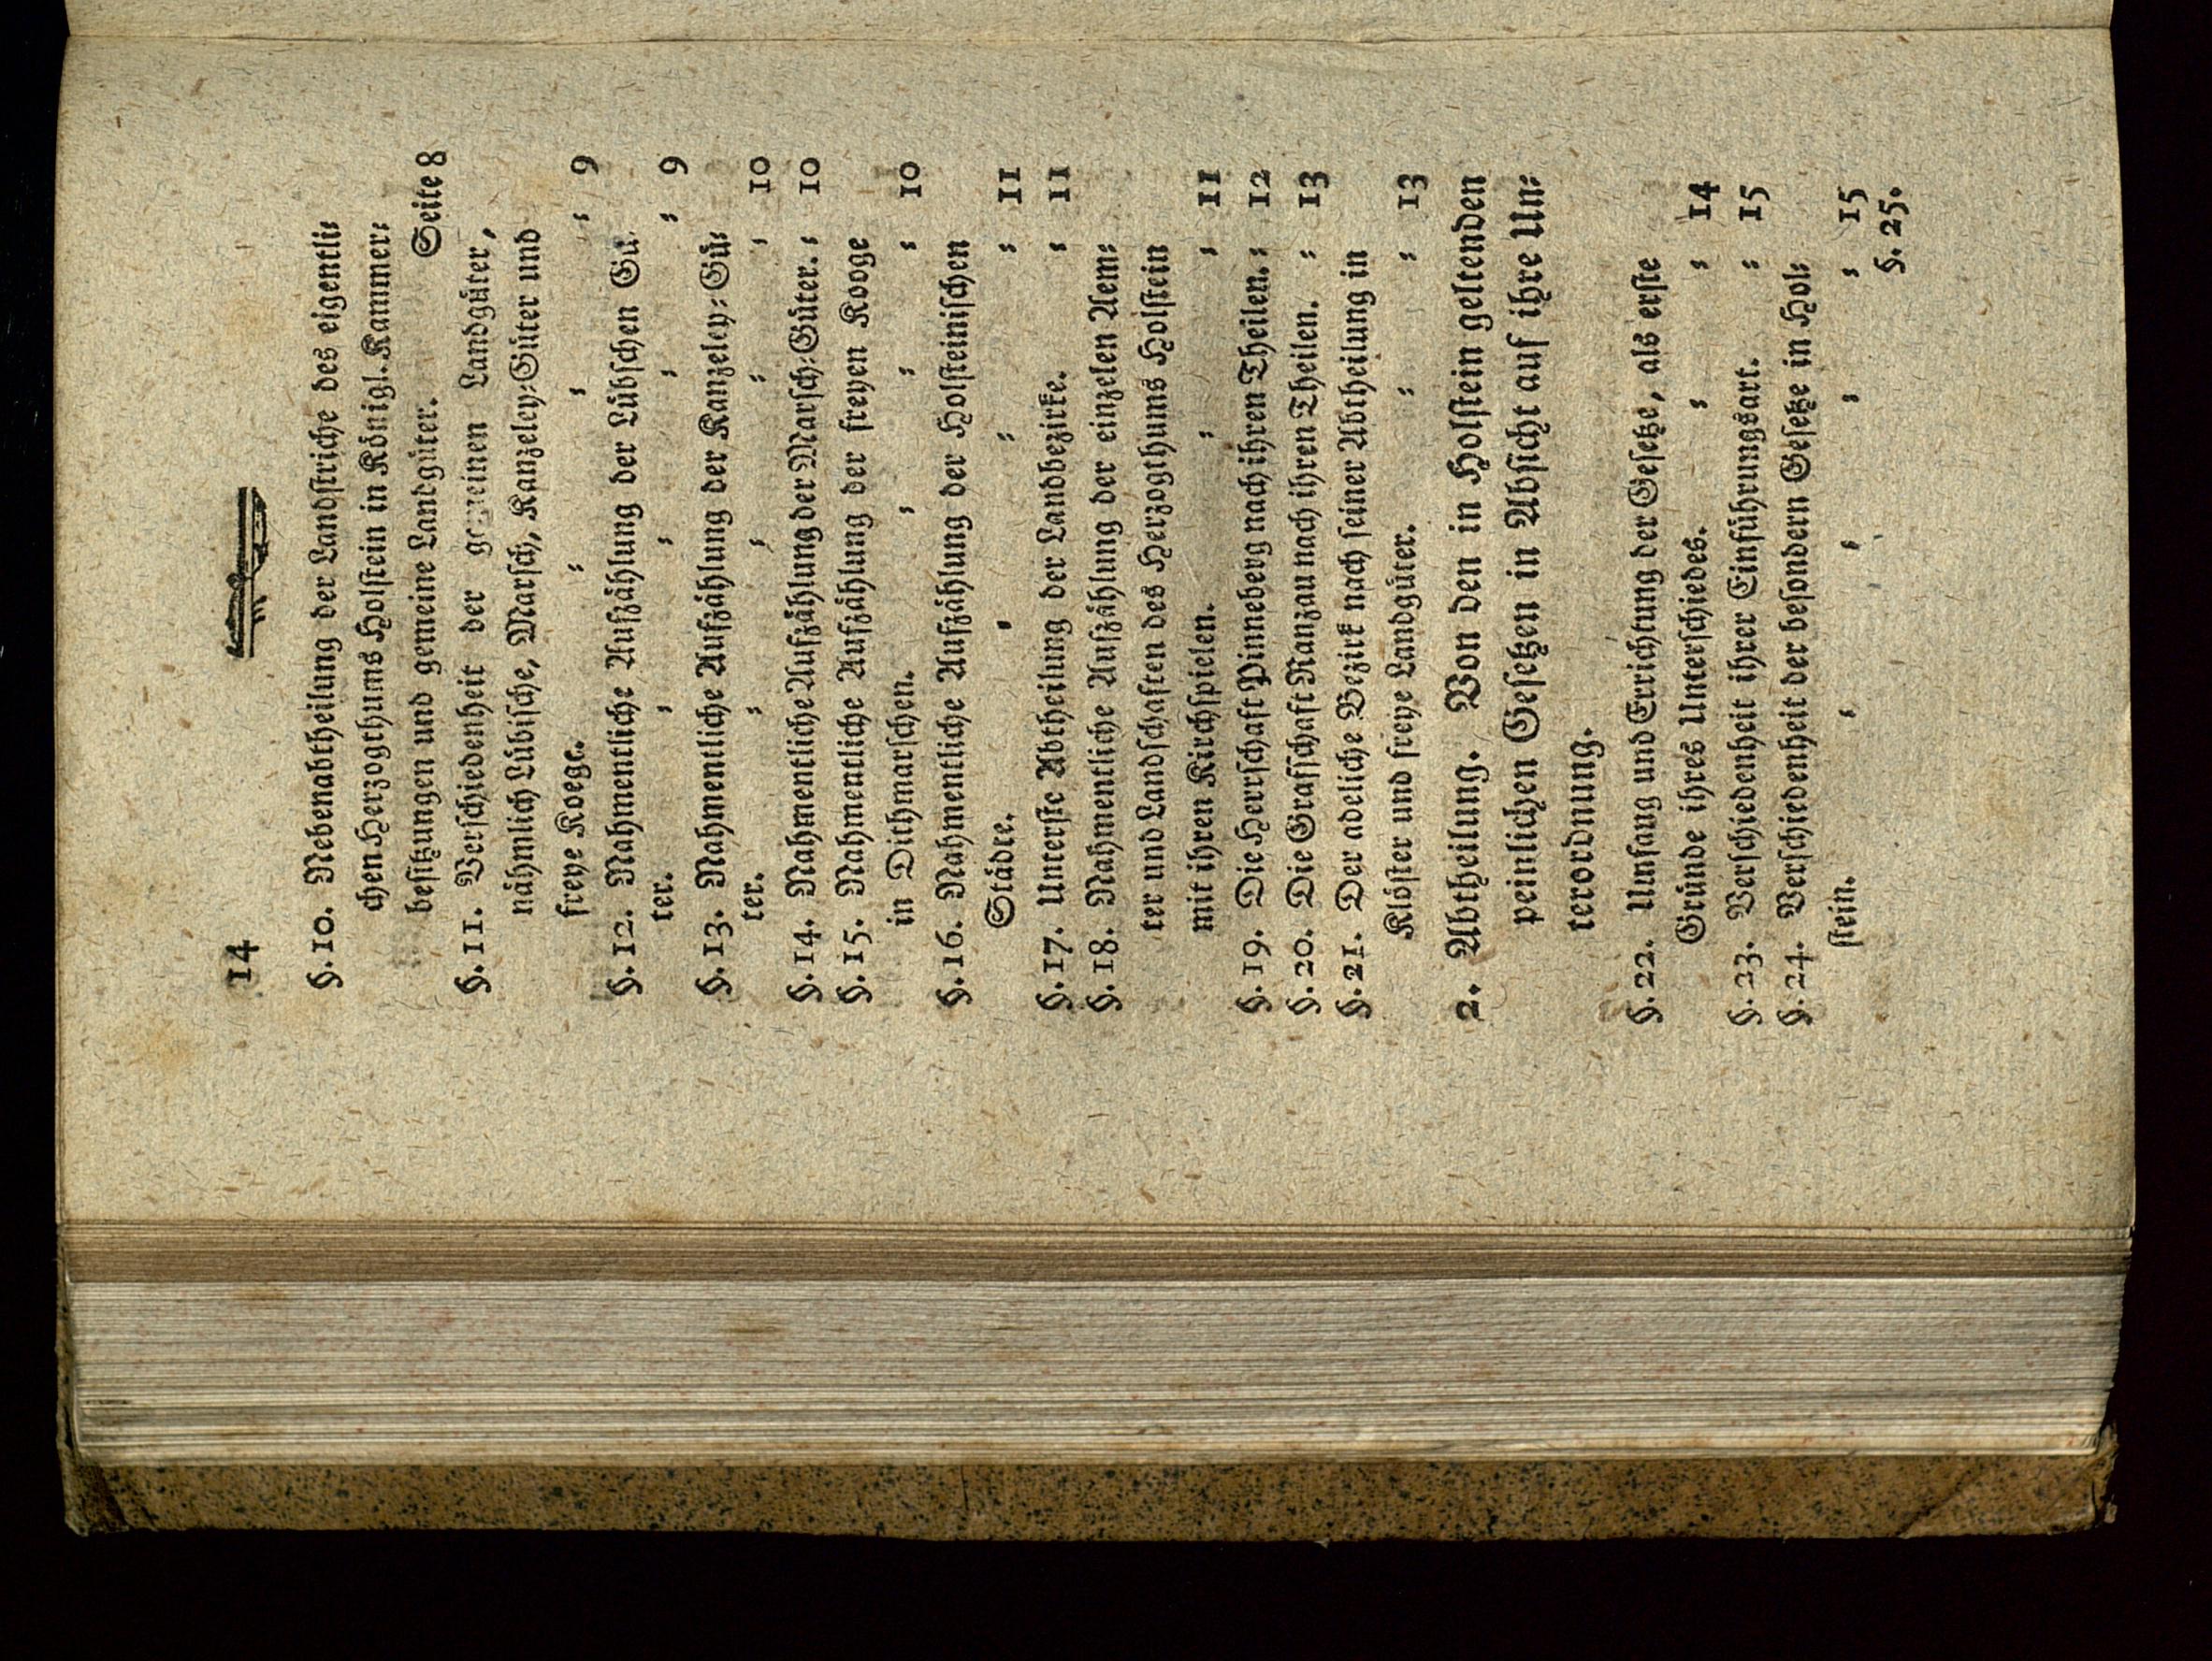 14
§. 10. Nebenabtheilung der Landstriche des eigentli⸗
chen Herzogthums Holstein in Königl. Kammer⸗
besitzungen und gemeine Landgüter. Seite 8
§. 11. Verschiedenheit der gemeinen Landgüter,
nähmlich Lübische, Marsch, Kanzeley⸗Güter und
freye Koege. ⸗ ⸗ ⸗ 9
§. 12. Nahmentliche Aufzählung der Lübschen Gü⸗
ter. ⸗ ⸗ ⸗ ⸗ 9
§. 13. Nahmentliche Aufzählung der Kanzeley⸗Gü⸗
ter. ⸗ ⸗ ⸗ ⸗ 10
§. 14. Nahmentliche Aufzählung der Marsch⸗Güter. ⸗ 10
§. 15. Nahmentliche Aufzählung der freyen Kooge
in Dithmarschen. ⸗ ⸗ ⸗ 10
§. 16. Nahmentliche Aufzählung der Holsteinischen
Städte. ⸗ ⸗ ⸗ 11
§. 17. Unterste Abtheilung der Landbezirke. ⸗ 11
§. 18. Nahmentliche Aufzählung der einzelen Aem⸗
ter und Landschaften des Herzogthums Holstein
mit ihren Kirchspielen. ⸗ ⸗ 11
§. 19. Die Herrschaft Pinneberg nach ihren Theilen. ⸗ 12
§. 20. Die Grafschaft Ranzau nach ihren Theilen. ⸗ 13
§. 21. Der adeliche Bezirk nach seiner Abtheilung in
Klöster und freye Landgüter. ⸗ ⸗ 13
2. Abtheilung. Von den in Holstein geltenden
peinlichen Gesetzen in Absicht auf ihre Un⸗
terordnung.
§. 22. Umfang und Errichtung der Gesetze, als erste
Gründe ihres Unterschiedes. ⸗ ⸗ 14
§. 23. Verschiedenheit ihrer Einführungsart. ⸗ 15
§. 24. Verschiedenheit der besondern Gesetze in Hol⸗
stein. ⸗ ⸗ ⸗ ⸗ 15
§. 25.